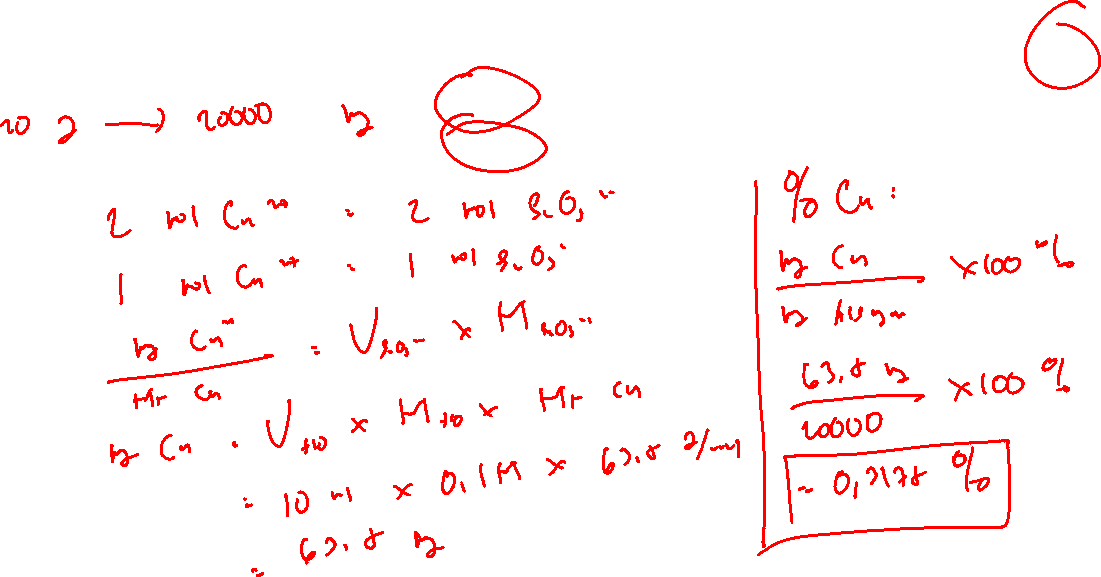 6
20 g → 20000 mg
2 mol Cu²⁺ = 2 mol S₂O₃²⁻
1 mol Cu²⁺ = 1 mol S₂O₃²⁻
mg Cu²⁺ / Mr Cu = V S₂O₃²⁻ × M S₂O₃²⁻
mg Cu = V tio × M tio × Mr Cu
= 10 ml × 0,1 M × 63,5 g/mol
= 63,5 mg
% Cu :
mg Cu / mg × 100 %
63,5 mg / 20000 × 100 %
= 0,3175 %